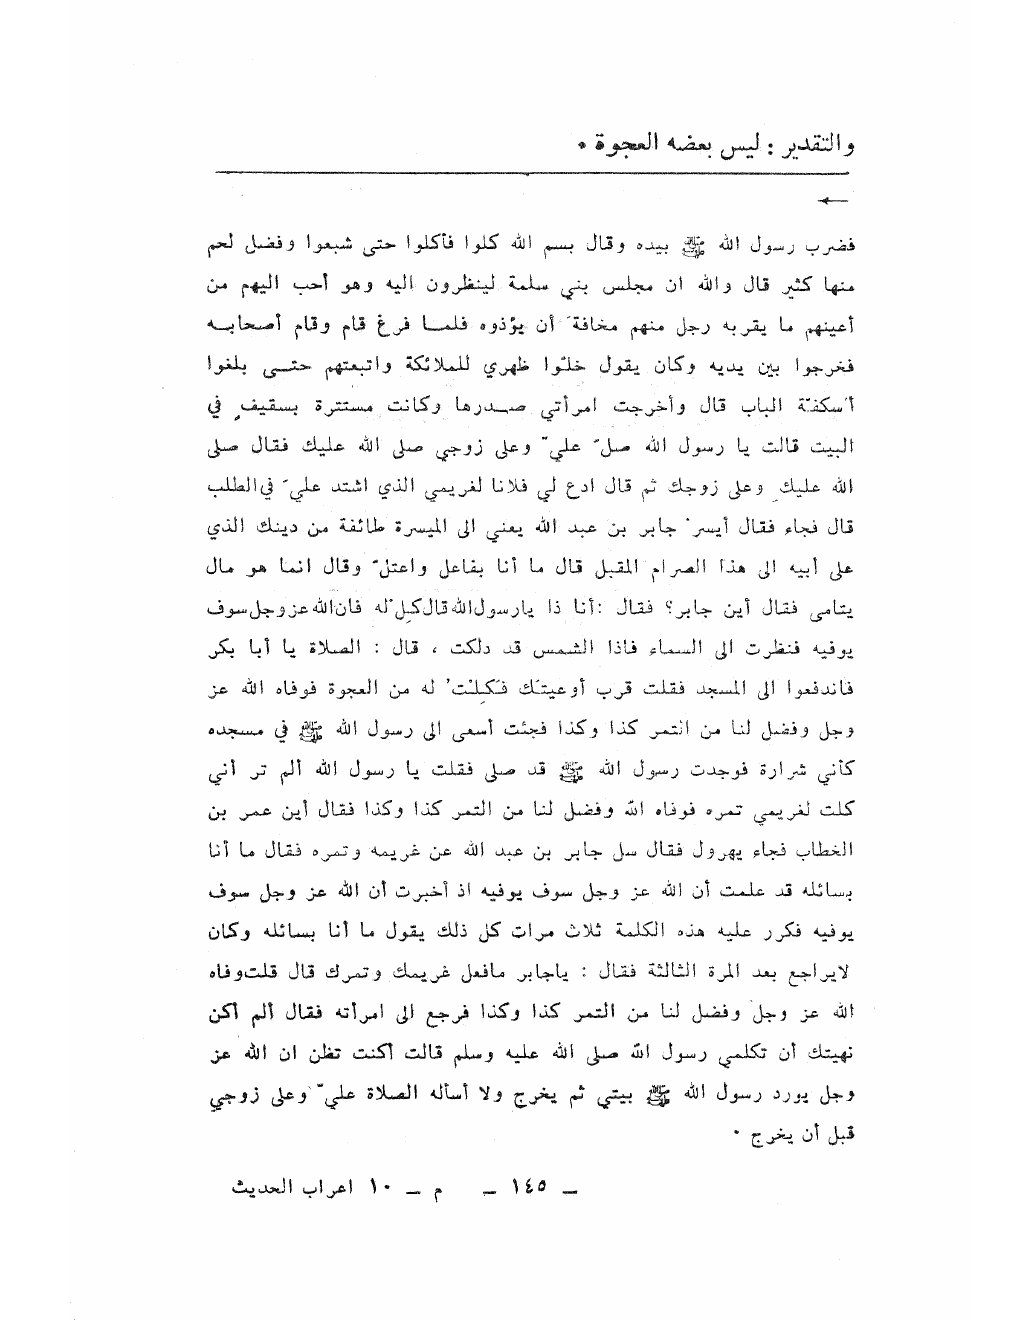 والتقدير : ليس بعضه العجوة ٠
←
فضرب رسول الله ﷺ بيده وقال بسم الله كلوا فأكلوا حتى شبعوا وفضل لحم
منها كثير قال والله ان مجلس بني سلمة لينظرون اليه وهو أحب اليهم من
أعينهم ما يقربه رجل منهم مخافةَ أن يؤذوه فلمـا فرغ قام وقام أصحابـه
فخرجوا بين يديه وكان يقول خلّوا ظهري للملائكة واتبعتهم حتـى بلغوا
أُسكفّة الباب قال وأخرجت امرأتي صـدرها وكانت مستترة بسقيفٍ في
البيت قالت يا رسول الله صلِّ عليّ وعلى زوجي صلى الله عليك فقال صلى
الله عليكِ وعلى زوجك ثم قال ادع لي فلانا لغريمي الذي اشتد عليّ في الطلب
قال فجاء فقال أيسرْ جابر بن عبد الله يعني الى الميسرة طائفة من دينك الذي
على أبيه الى هذا الصرام المقبل قال ما أنا بفاعل واعتلّ وقال انما هو مال
يتامى فقال أين جابر؟ فقال :أنا ذا يارسول الله قال كِلْ له فان الله عز وجل سوف
يوفيه فنظرت الى السماء فاذا الشمس قد دلكت ، قال : الصلاة يا أبا بكر
فاندفعوا الى المسجد فقلت قرب أوعيتَك فكِلْتُ له من العجوة فوفاه الله عز
وجل وفضل لنا من التمر كذا وكذا فجئت أسعى الى رسول الله ﷺ في مسجده
كأني شرارة فوجدت رسول الله ﷺ قد صلى فقلت يا رسول الله ألم تر أني
كلت لغريمي تمره فوفاه الله وفضل لنا من التمر كذا وكذا فقال أين عمر بن
الخطاب فجاء يهرول فقال سل جابر بن عبد الله عن غريمه وتمره فقال ما أنا
بسائله قد علمت أن الله عز وجل سوف يوفيه اذ أخبرت أن الله عز وجل سوف
يوفيه فكرر عليه هذه الكلمة ثلاث مرات كل ذلك يقول ما أنا بسائله وكان
لايراجع بعد المرة الثالثة فقال : ياجابر مافعل غريمك وتمرك قال قلت وفاه
الله عز وجل وفضل لنا من التمر كذا وكذا فرجع الى امرأته فقال ألم أكن
نهيتك أن تكلمي رسول الله صلى الله عليه وسلم قالت أكنت تظن ان الله عز
وجل يورد رسول الله ﷺ بيتي ثم يخرج ولا أسأله الصلاة عليّ وعلى زوجي
قبل أن يخرج ٠
ـ ١٤٥ ـ م ـ ١٠ اعراب الحديث